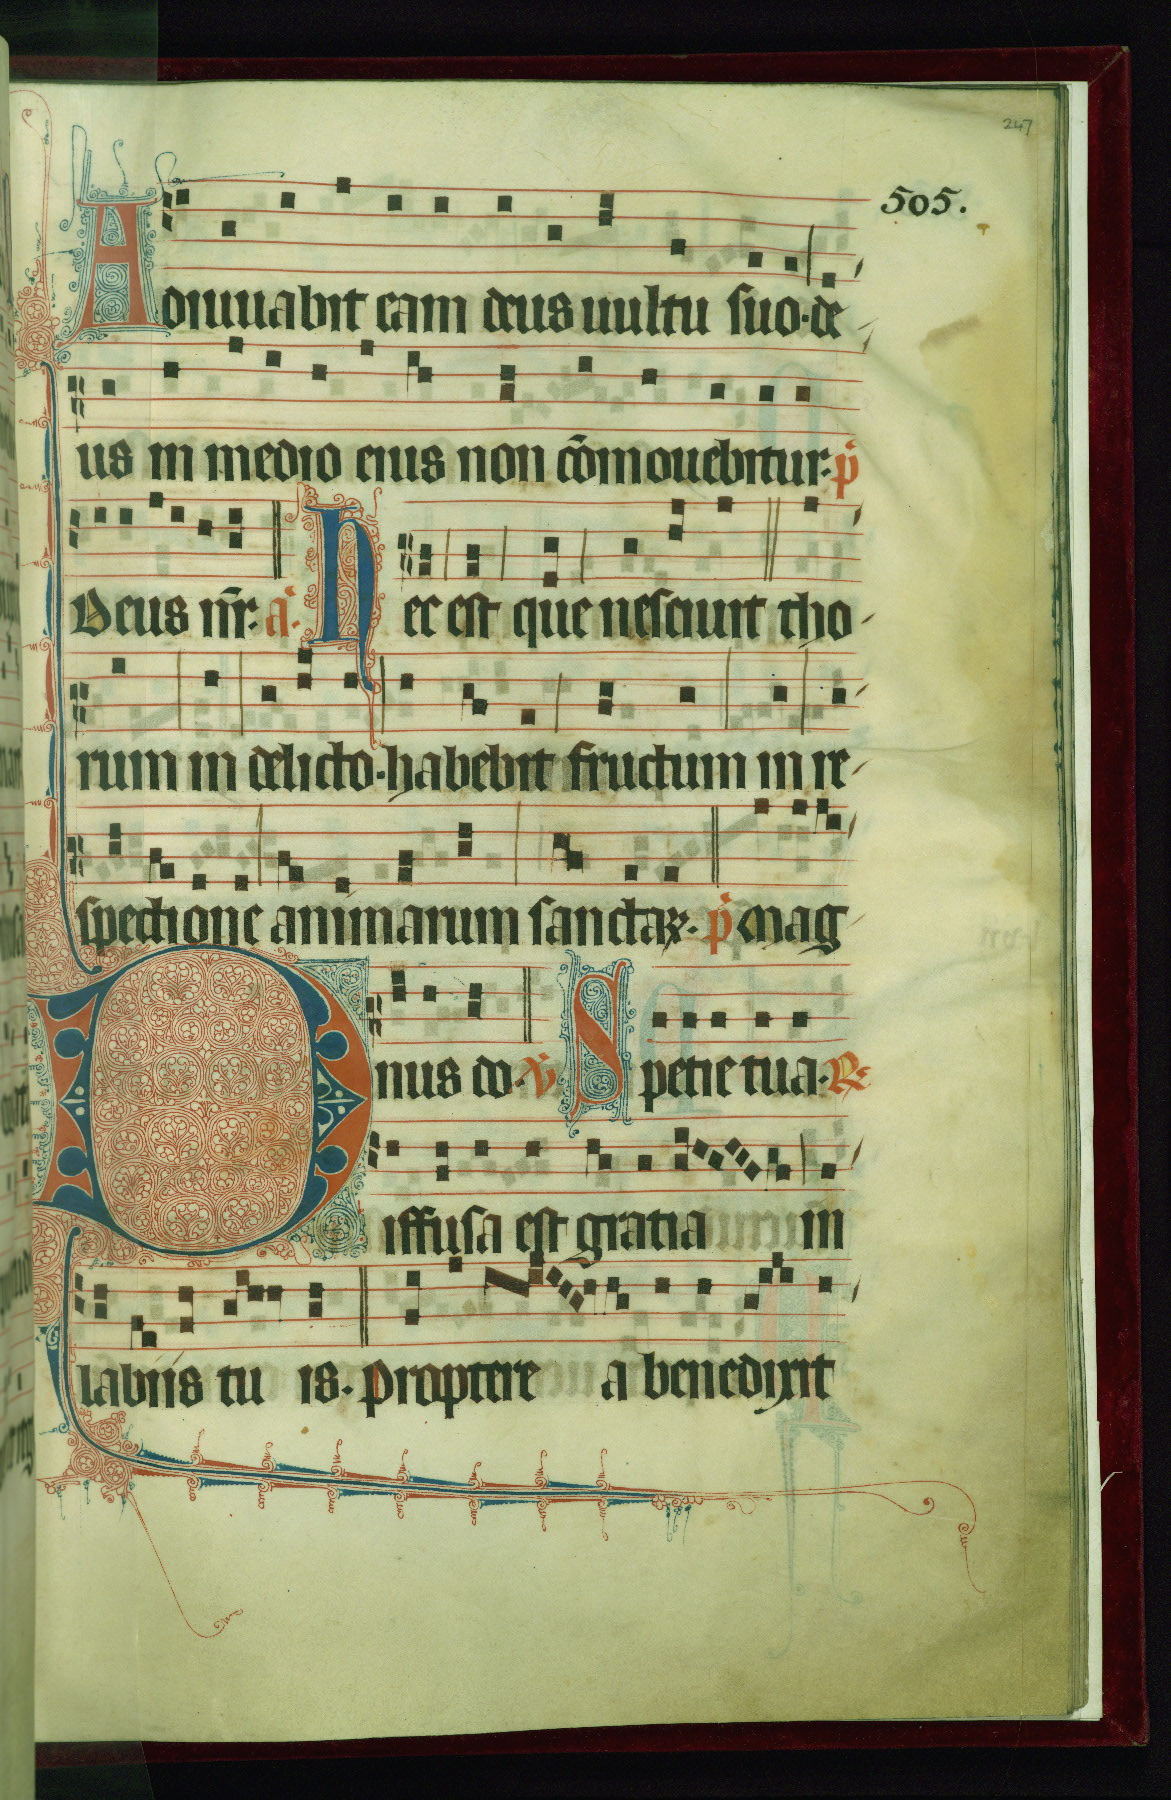 247
505.
Adiuuabit eam deus uultu suo·de
us in medio eius non cōmouebitur· p̄
Deus nr̄· a· Hec est que nesciuit tho
rum in delicto·habebit fructum in re
spectione animarum sanctaꝝ· p̄ Mag
nus do· v̄ Spetie tua· R
Diffusa est gratia in
labiis tu is· Proptere a benedixit